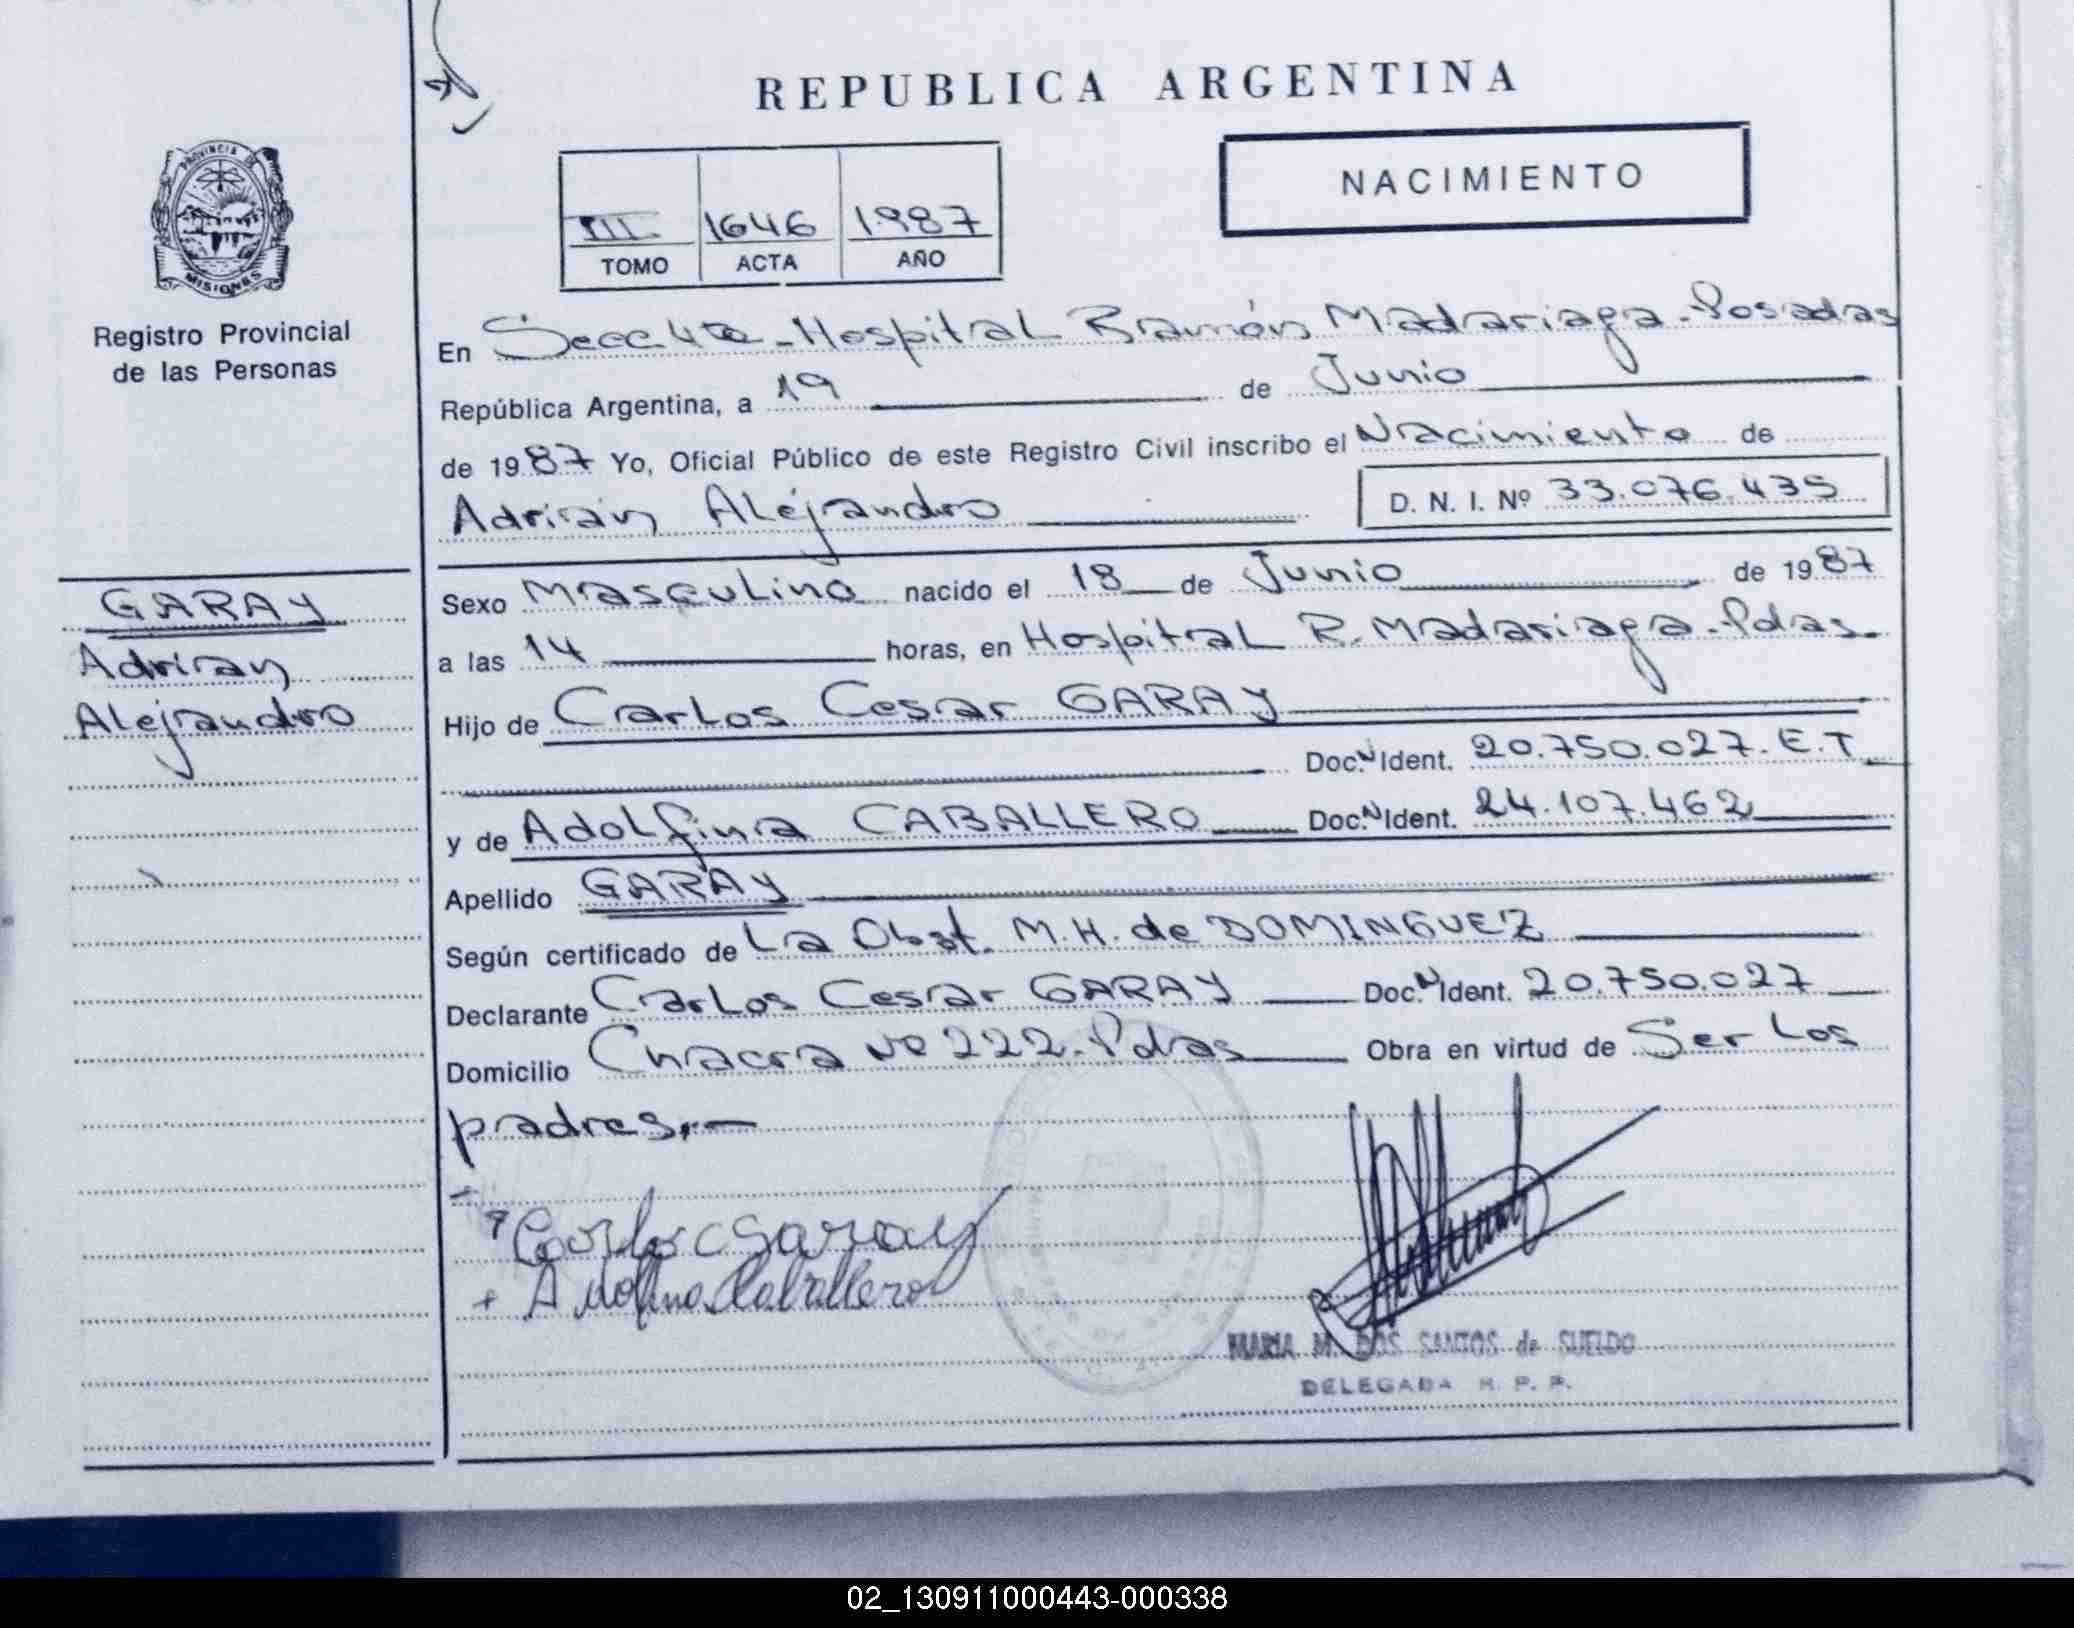 REPUBLICA ARGENTINA
NACIMIENTO
III 1646 1987
TOMO ACTA AÑO
PROVINCIA DE MISIONES
Registro Provincial
de las Personas
GARAY
Adrian
Alejandro
En Secc 4ta - Hospital Ramón Madariaga - Posadas
República Argentina, a 19 de Junio
de 1987 Yo, Oficial Público de este Registro Civil inscribo el Nacimiento de
Adrián Alejandro D. N. I. Nº 33.076.435
Sexo Masculino nacido el 18 de Junio de 1987
a las 14 horas, en Hospital R. Madariaga - Pdas.
Hijo de Carlos Cesar GARAY
Doc. N Ident. 20.750.027. E.T
y de Adolfina CABALLERO Doc. N Ident. 24.107.462
Apellido GARAY
Según certificado de La Obst. M.H. de DOMINGUEZ
Declarante Carlos Cesar GARAY Doc. N Ident. 20.750.027
Domicilio Chacra Nº 222. Pdas Obra en virtud de Ser los
padres.-
Carlos C Garay
+ Adolfina Caballero
MARIA M. DOS SANTOS de SUELDO
DELEGADA R. P. P.
02_130911000443-000338